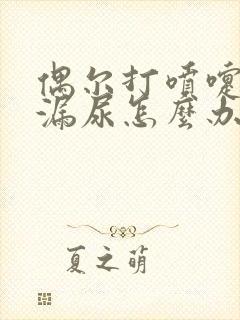 偶尔打喷嚏
漏尿怎麼办
夏之萌